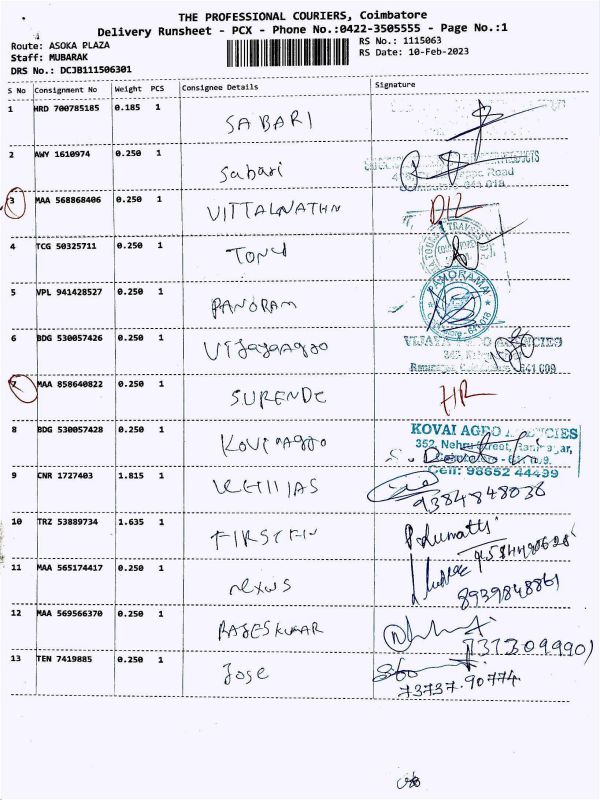 THE PROFESSIONAL COURIERS, Coimbatore
Delivery Runsheet - PCX - Phone No.:0422-3505555 - Page No.:1
Route: ASOKA PLAZA
RS No.: 1115063
Staff: MUBARAK
RS Date: 10-Feb-2023
DRS No.: DCJB111506301
S No Consignment No Weight PCS Consignee Details Signature
1 HRD 700785185 0.185 1 SABARI
2 AWY 1610974 0.250 1 Sabari
3 MAA 568868406 0.250 1 VITTALNATHN D/L
4 TCG 50325711 0.250 1 TONY
5 VPL 941428527 0.250 1 PANORAM
PANORAMA
6 BDG 530057426 0.250 1
VIJAYA AGRO AGENCIES
7 MAA 858640822 0.250 1 SURENDC
8 BDG 530057428 0.250 1
KOVAI AGRO AGENCIES
352, Nehru Street,
Cell: 98652 44499
9 CNR 1727403 1.815 1
9384848036
10 TRZ 53889734 1.635 1 FIRSTFIN
11 MAA 565174417 0.250 1 nexus
8939848861
12 MAA 569566370 0.250 1 RAJESKUMAR
13 TEN 7419885 0.250 1 Jose
73737.90774